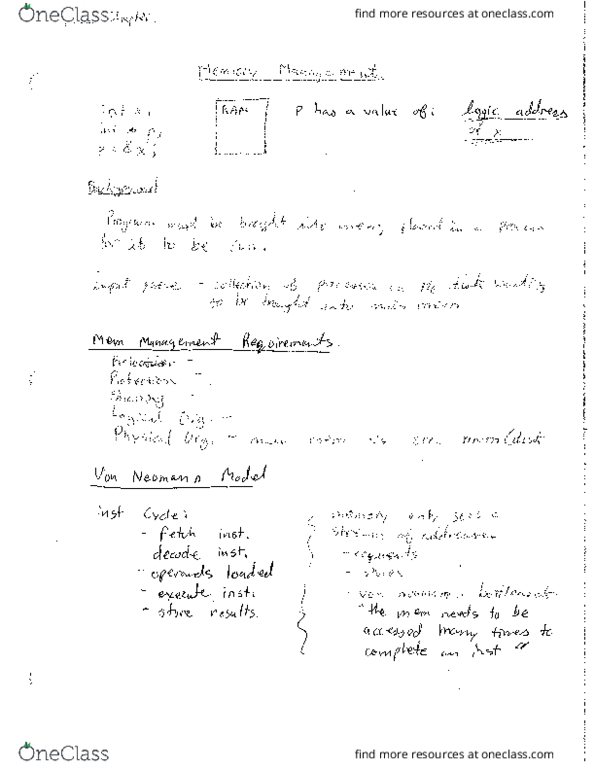 OneClass
find more resources at oneclass.com
Memory Management
int x;
int * p;
p = & x;
RAM
P has a value of: logic address
of x
Background
Program must be brought into memory placed in a process
for it to be run.
input queue - collection of processes on the disk waiting
to be brought into main
Mem Management Requirements.
Relocation -
Protection -
Sharing -
Logical Org. -
Physical Org. - main mem vs sec. mem (disk
Von Neomann Model
inst Cycle:
- fetch inst.
decode inst.
- operands loaded
- execute inst.
- store results.
memory only sees a
stream of addresses
- requests
- stores
- von bottleneck
"the mem needs to be
accessed many times to
complete an inst "
OneClass
find more resources at oneclass.com